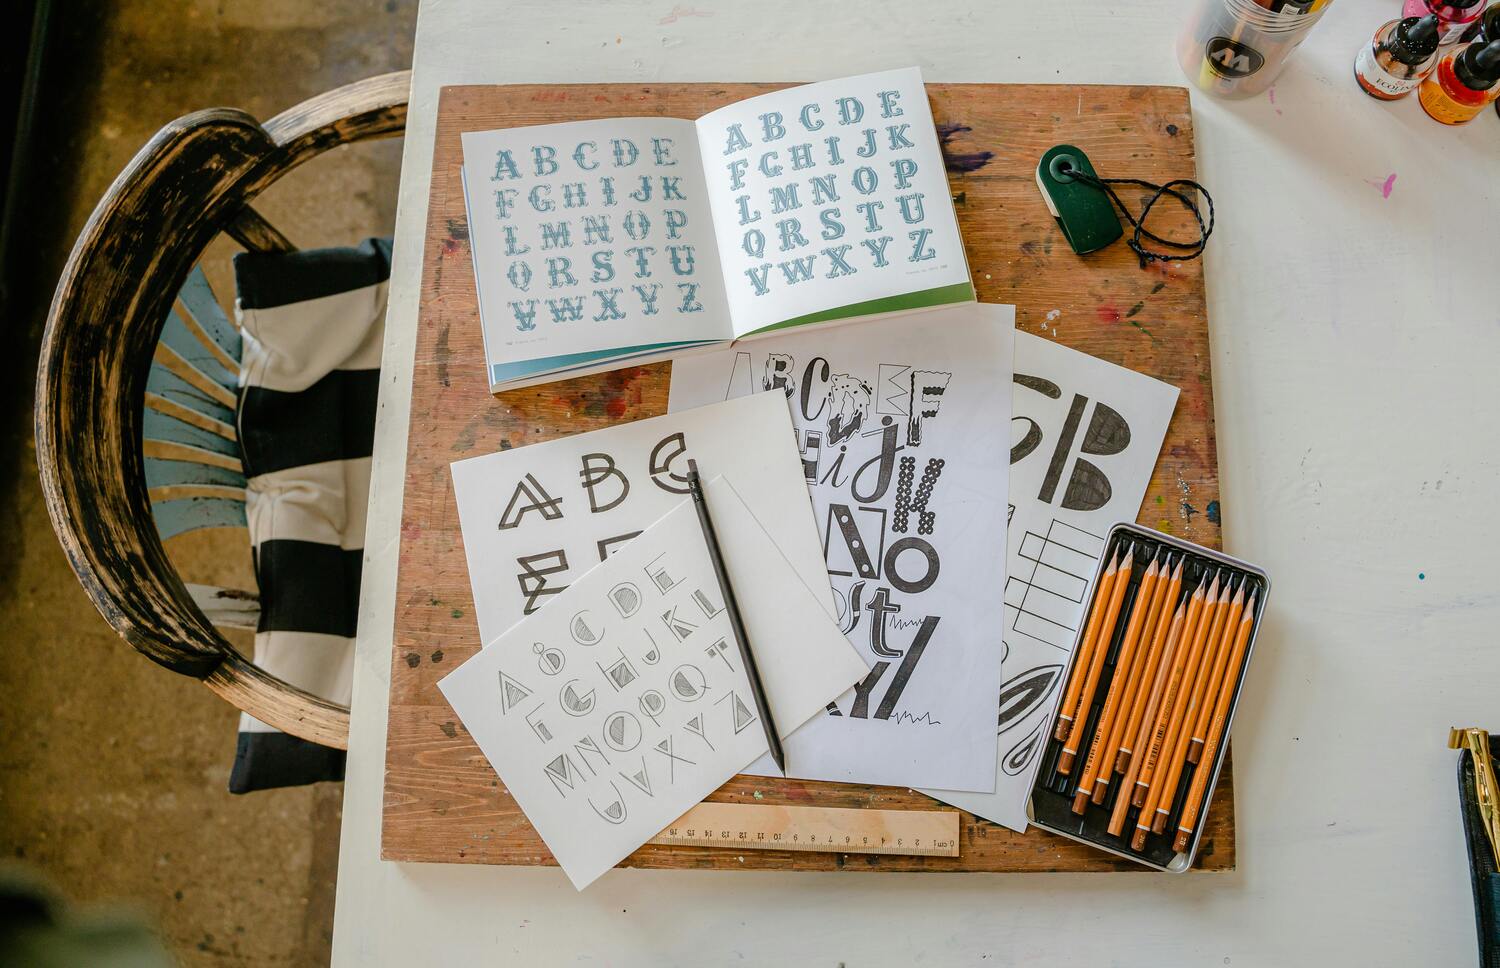 A B C D E
F G H I J K
L M N O P
Q R S T U
V W X Y Z
A B C D E
F G H I J K
L M N O P
Q R S T U
V W X Y Z
A B C D E F
H i j K
N O
S t
Y /
A B C
E
A B C D E
F G H I J K L
M N O P Q T
U V X Y Z
B
0 1 2 3 4 5 6 7 8 9 10 11 12 13 14 15 16
cm
ECOLINE